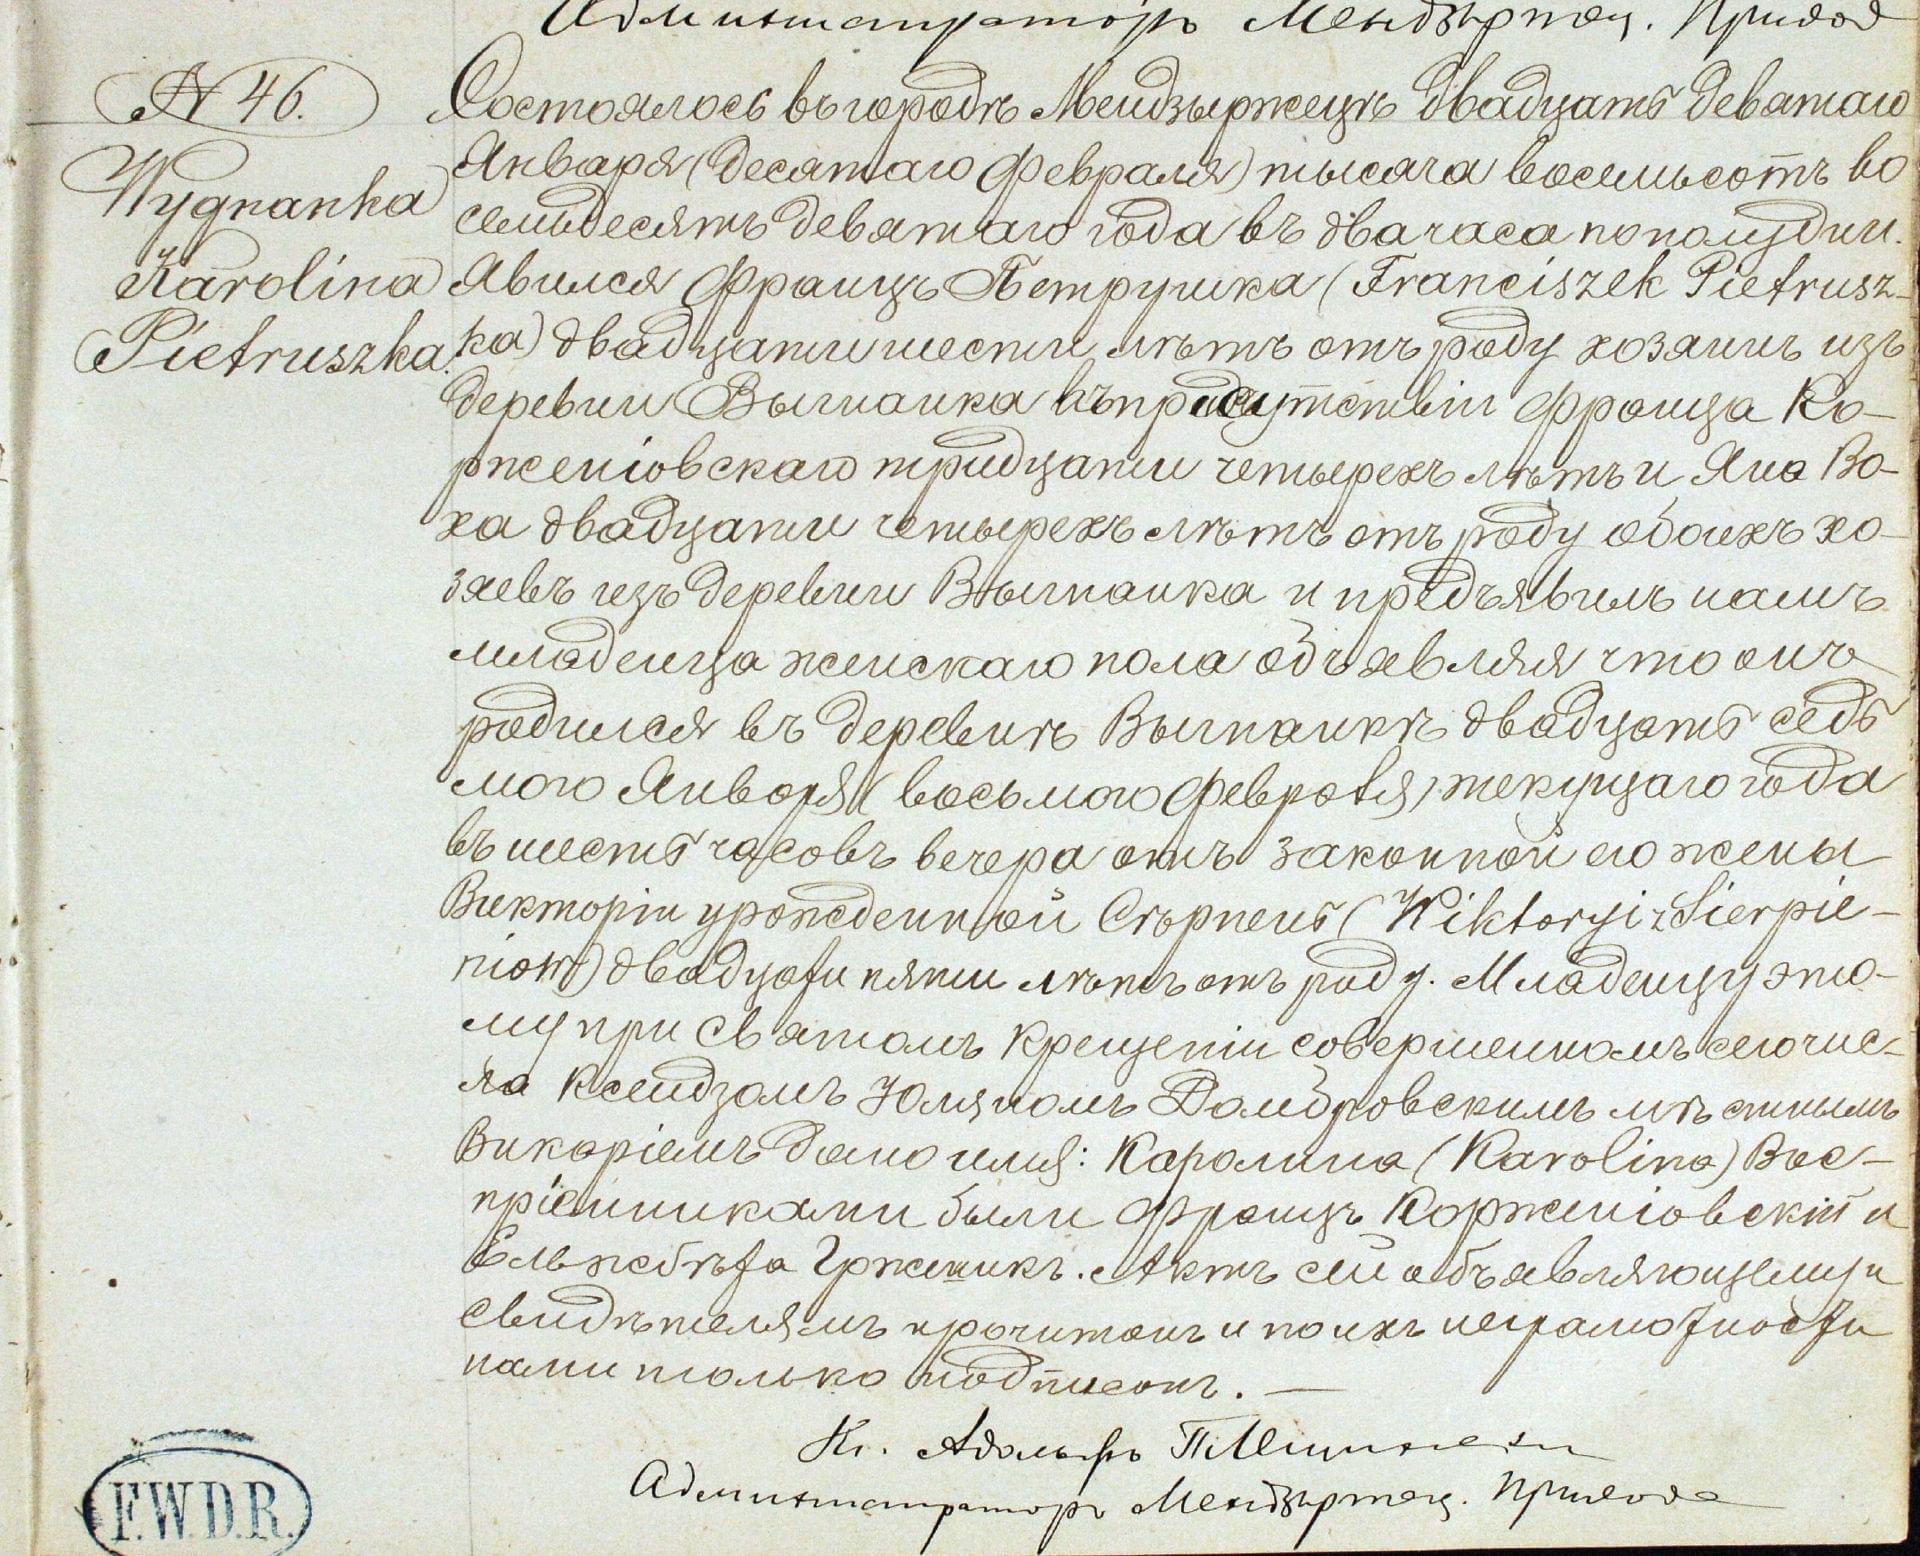 Администраторъ Мендзыржец. Приход
N 46.
Wygnanka
Karolina
Pietruszka.
Состоялось въ городѣ Мендзыржецѣ двадцать девятаго
Января (десятаго Февраля) тысяча восемьсотъ во
семьдесятъ девятаго года въ два часа пополудни.
Явился Францъ Петрушка (Franciszek Pietrusz-
ka) двадцати шести лѣтъ отъ роду хозяинъ изъ
деревни Выгнанка въ присутствіи Франца Ко-
рженіовскаго тридцати четырехъ лѣтъ и Яна Во-
ха двадцати четырехъ лѣтъ отъ роду обоихъ хо-
зяевъ изъ деревни Выгнанка и предъявилъ намъ
младенца женскаго пола объявляя что онъ
родился въ деревнѣ Выгнанкѣ двадцать седь
мого Января (восьмого Февраля) текущаго года
въ шесть часовъ вечера отъ законной его жены
Викторіи урожденной Сѣрпень (Wiktoryi z Sierpie-
niow) двадцати пяти лѣтъ отъ роду. Младенцу это-
му при Святомъ Крещеніи совершенномъ сего чис-
ла Ксендзомъ Юліяномъ Домбровскимъ мѣстнымъ
Викаріемъ дано имя: Каролина (Karolina) Вос-
пріемниками были Францъ Корженіовскій и
Ельжбѣта Грженикъ. Актъ сей объявляющему и
свидѣтелямъ прочитанъ и по ихъ неграмотности
нами только подписанъ. —
Кс. Адольфъ
Администраторъ Мендзыржец. Прихода
F.W.D.R.